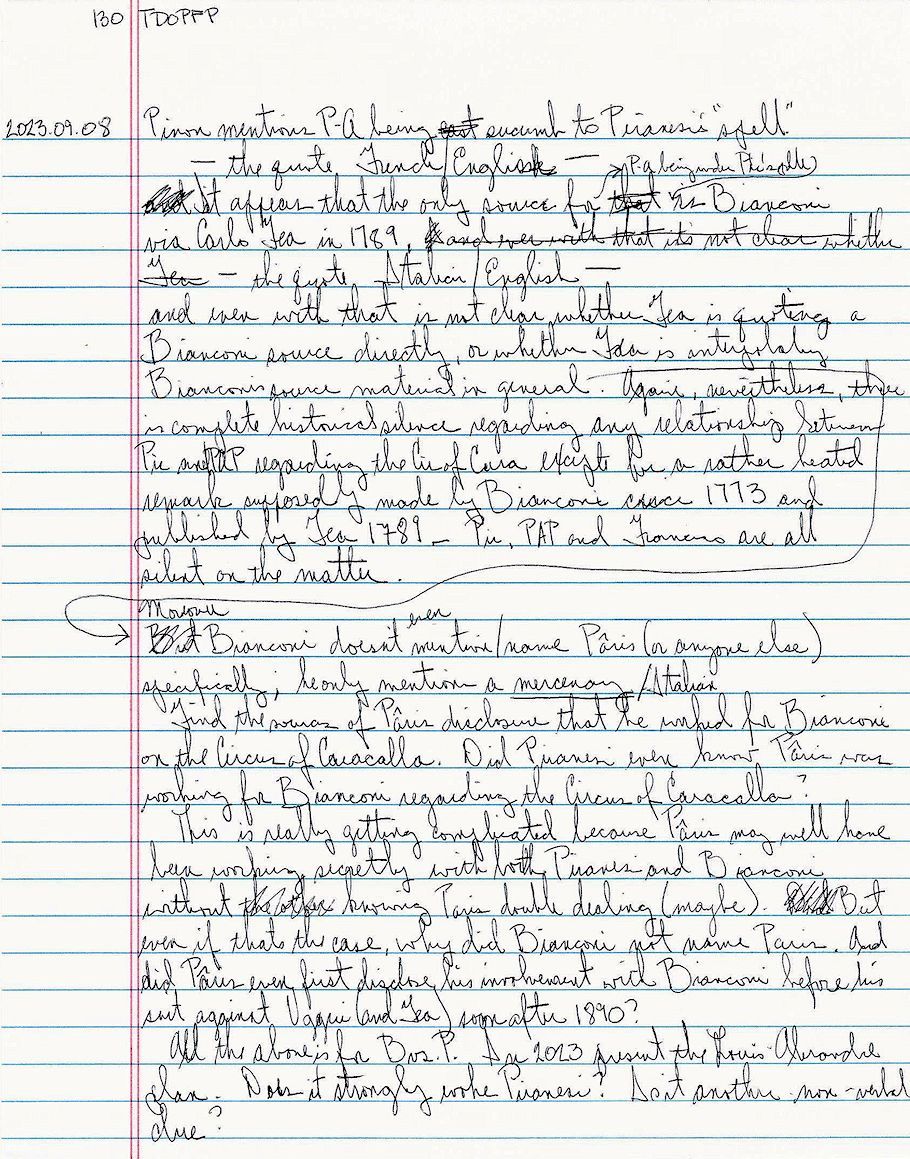 130 TDOPFP
2023.09.08 Pinon mentions P-A being succumb to Piranesi's "spell"
— the quote French/English —
P-A being under Pi's spell
it appears that the only source for is Bianconi
via Carlo Fea in 1789, and even with that it's not clear whether
Fea — the quote Italian/English —
and even with that is not clear whether Fea is quoting a
Bianconi source directly, or whether Fea is interpolating
Bianconi's source material in general. Again, nevertheless, there
is complete historical silence regarding any relationship between
Pir and PAP regarding the Cir of Cara except for a rather heated
remark supposedly made by Bianconi circa 1773 and
published by Fea 1789 — Pir, PAP and Francesco are all
silent on the matter.
Moreover
even
But Bianconi doesn't mention/name Pâris (or anyone else)
specifically; he only mentions a mercenary/Italian
Find the source of Pâris disclosure that he worked for Bianconi
on the Circus of Caracalla. Did Piranesi even know Pâris was
working for Bianconi regarding the Circus of Caracalla?
This is really getting complicated because Pâris may well have
been working secretly with both Piranesi and Bianconi
without the other knowing Paris double dealing (maybe). But
even if that's the case, why did Bianconi not name Paris. And
did Pâris even first disclose his involvement with Bianconi before his
suit against Uggeri (and Fea) soon after 1890?
All the above is for Bos.P. In 2023 present the Louis-Alexandre
plan. Does it strongly evoke Piranesi? Is it another non-verbal
clue?